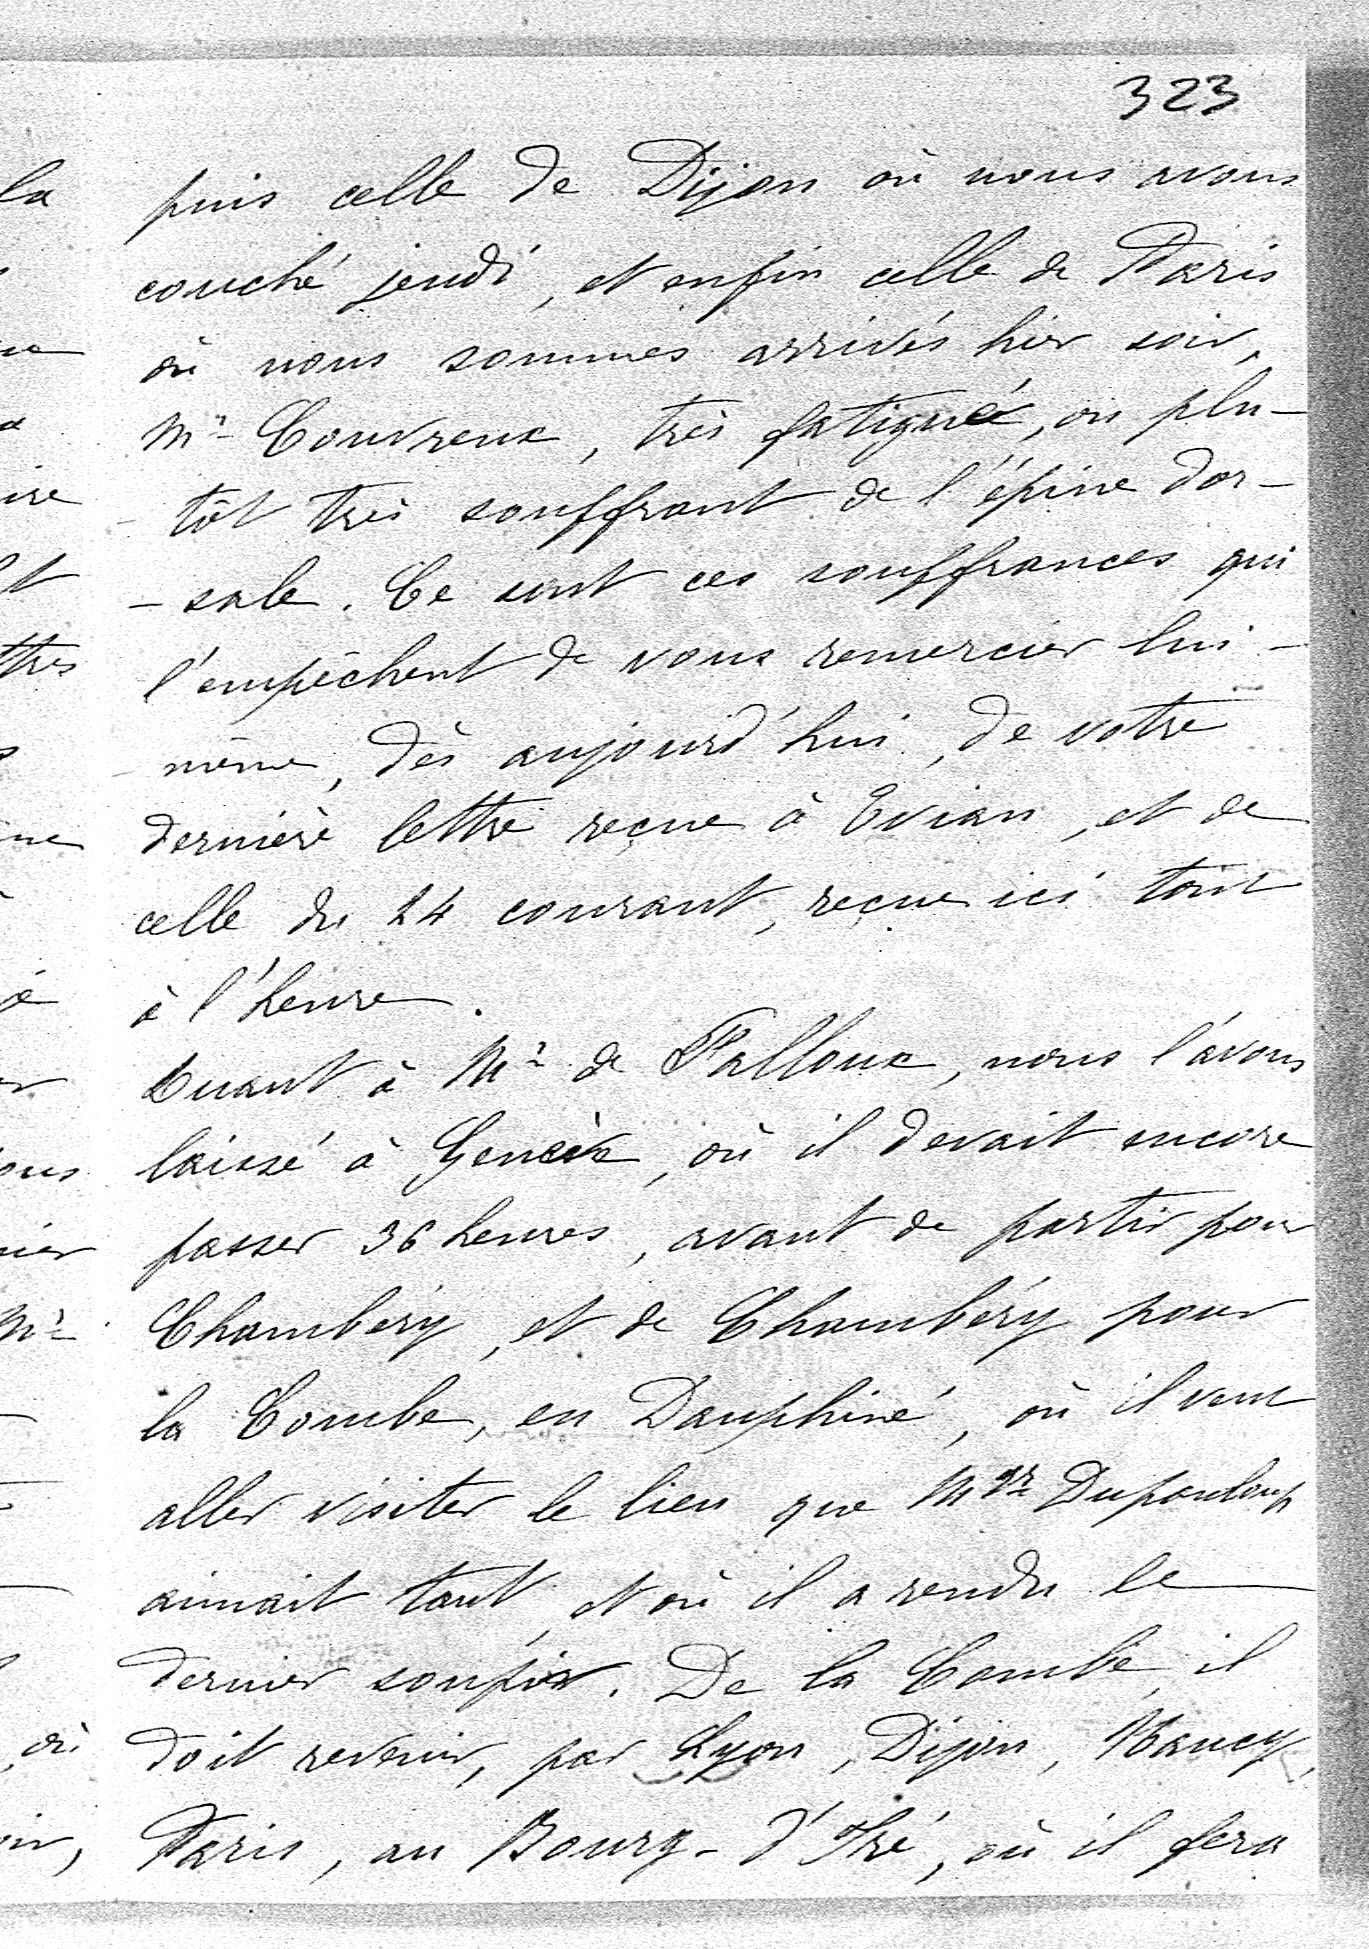 323
puis celle de Dijon où nous avons
couché jeudi, et enfin celle de Paris
où nous sommes arrivés hier soir,
Mr Couvreux, très fatigué, ou plu-
- tôt très souffrant de l'épine dor-
- sale. Ce sont ces souffrances qui
l'empêchent de vous remercier lui -
- même, dès aujourd'hui, de votre
dernière lettre reçue à Evian, et de
celle du 24 courant, reçue ici tout
à l'heure.
Quant à Mr de Falloux, nous l'avons
laissé à Genève, où il devait encore
passer 36 heures, avant de partir pour
Chambéry, et de Chambéry pour
la Combe, en Dauphiné, où il veut
aller visiter le lieu que Mgr Dupanloup
aimait tant, et où il a rendu le
dernier soupir. De la Combe, il
doit revenir, par Lyon, Dijon, Nancy,
Paris, au Bourg-d'Iré, où il fera